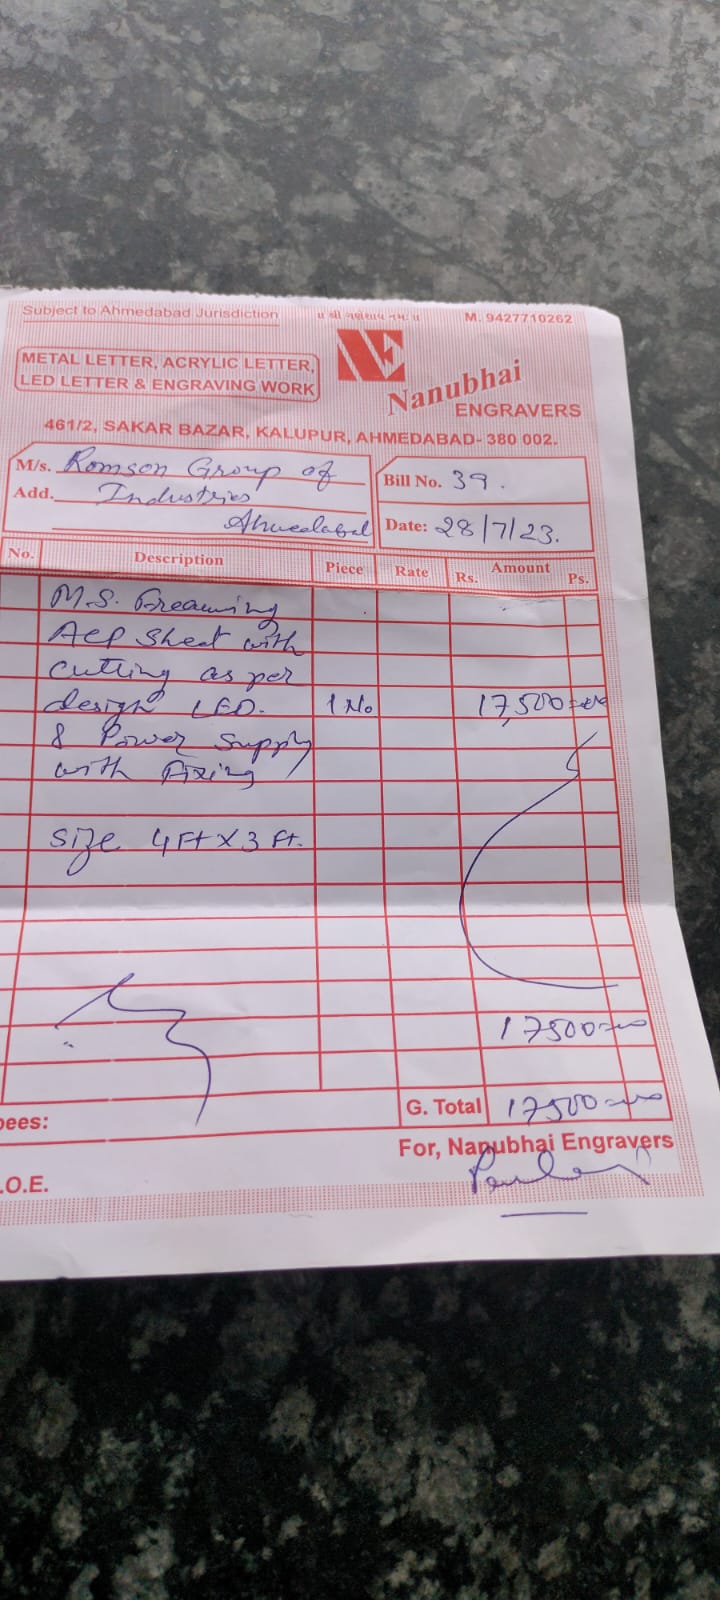 Subject to Ahmedabad Jurisdiction
॥ श्री ગણેશાય નમઃ ॥
M. 9427710262
METAL LETTER, ACRYLIC LETTER,
LED LETTER & ENGRAVING WORK
NE
Nanubhai
ENGRAVERS
461/2, SAKAR BAZAR, KALUPUR, AHMEDABAD- 380 002.
M/s. Romson Group of
Add. Industries
Ahmedabad
Bill No. 39.
Date: 28/7/23.
No. Description Piece Rate Amount
Rs. Ps.
M.S. Freaming
ACP Sheet with
cutting as per
design LED. 1 No 17,500=00
& Power Supply
with Fixing
Size 4 Ft X 3 Ft.
17500=00
pees:
G. Total 17500=00
For, Nanubhai Engravers
.O.E.